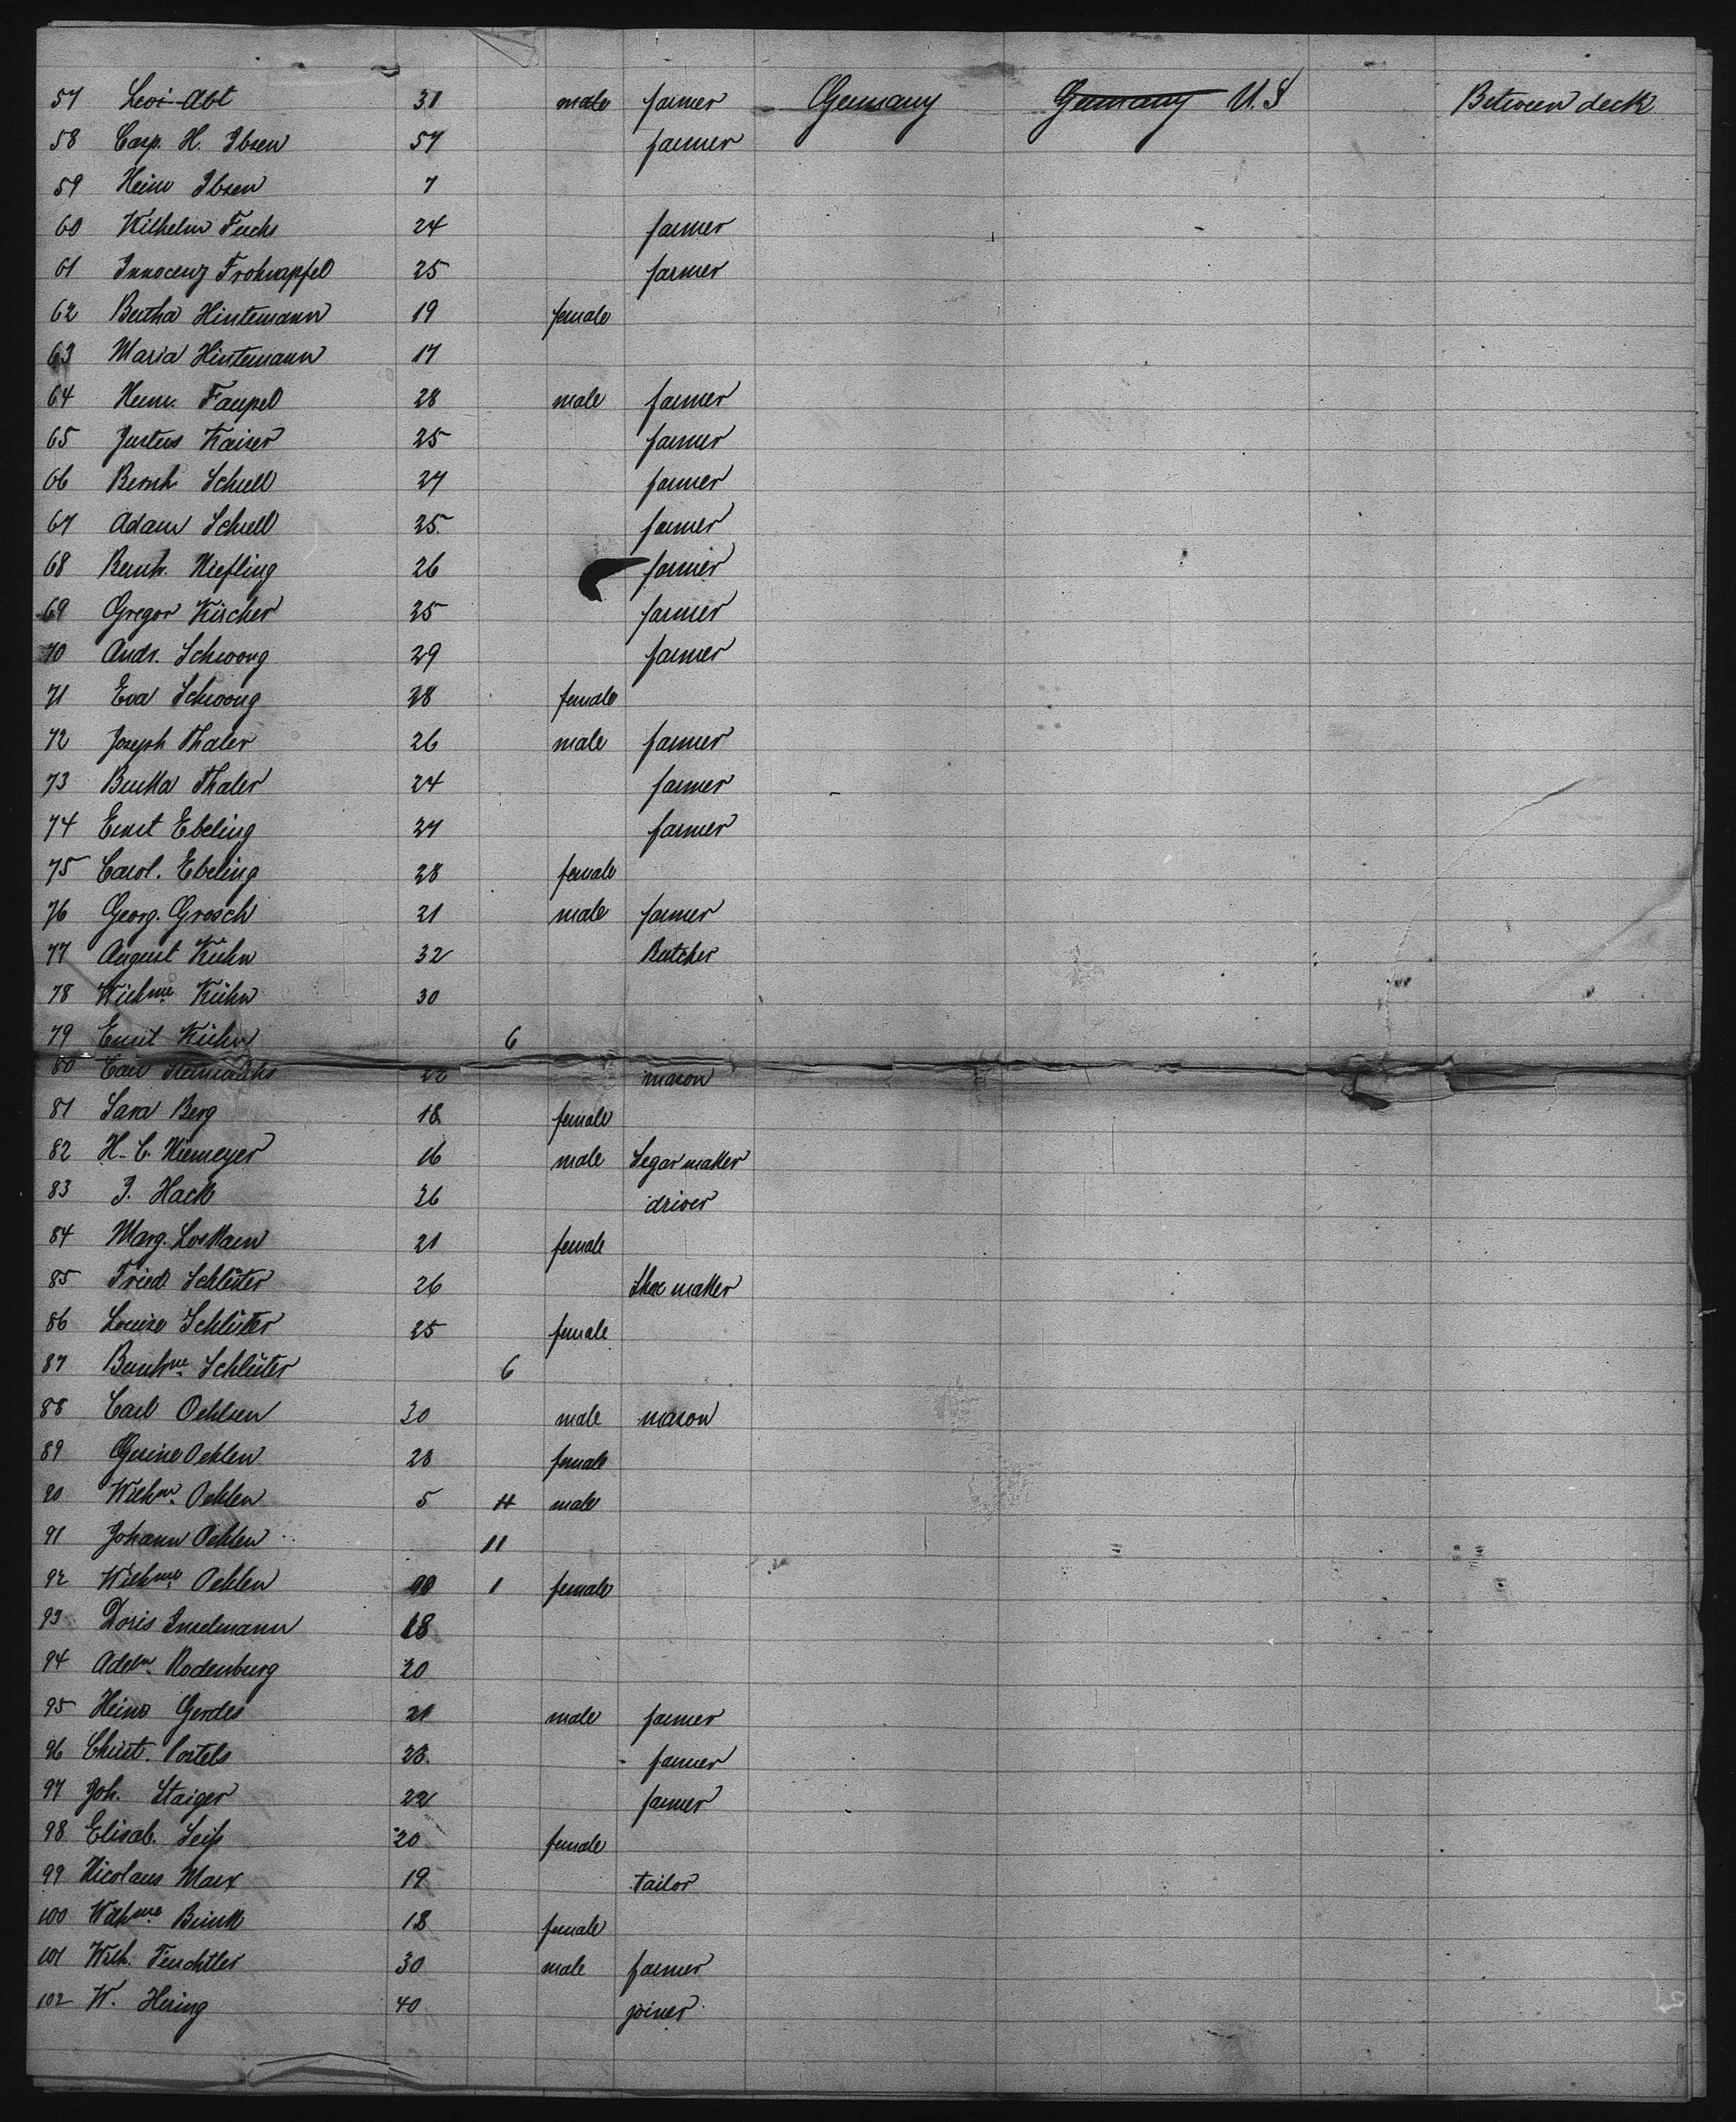 57 Levi Abt 31 male farmer Germany Germany U.S Between deck
58 Casp. H. Ibsen 57 farmer
59 Heinr Ibsen 7
60 Wilhelm Fuchs 24 farmer
61 Innocenz Frohnapfel 25 farmer
62 Bertha Hintemann 19 female
63 Maria Hintemann 17
64 Heinr. Faupel 28 male farmer
65 Justus Kaiser 25 farmer
66 Bernh Schell 27 farmer
67 Adam Schell 25 farmer
68 Bernh. 26 farmer
69 Gregor Kircher 25 farmer
70 Andr. Schwong 29 farmer
71 Eva Schwong 28 female
72 Joseph Thaler 26 male farmer
73 Thaler 24 farmer
74 Ernst Ebeling 27 farmer
75 Carol. Ebeling 28 female
76 Georg. Grosch 21 male farmer
77 August Kühn 32 Butcher
78 Wilhme Kühn 30
79 Kühn 6
80 Carl mason
81 Sara Berg 18 female
82 H. C. Niemeyer 16 male Segar maker
83 J. Hack 26 driver
84 Marg. 21 female
85 Friedr Schlüter 26 Shoe maker
86 Louise Schlüter 25 female
87 Schlüter 6
88 Carl Oehlsen 30 male mason
89 Gesine Oehlen 28 female
90 Oehlen 5 male
91 Johann Oehlen 11
92 Wilhme Oehlen 1 female
93 Doris Inselmann 18
94 Rodenburg 20
95 Heinr Gerdes 21 male farmer
96 Christ. Postels 23 farmer
97 Joh. Staiger 22 farmer
98 Elisab. Seiß 20 female
99 Nicolaus Marx 19 tailor
100 Wilhme Brink 18 female
101 Wilh. Feuchtler 30 male farmer
102 W. Hering 40 joiner